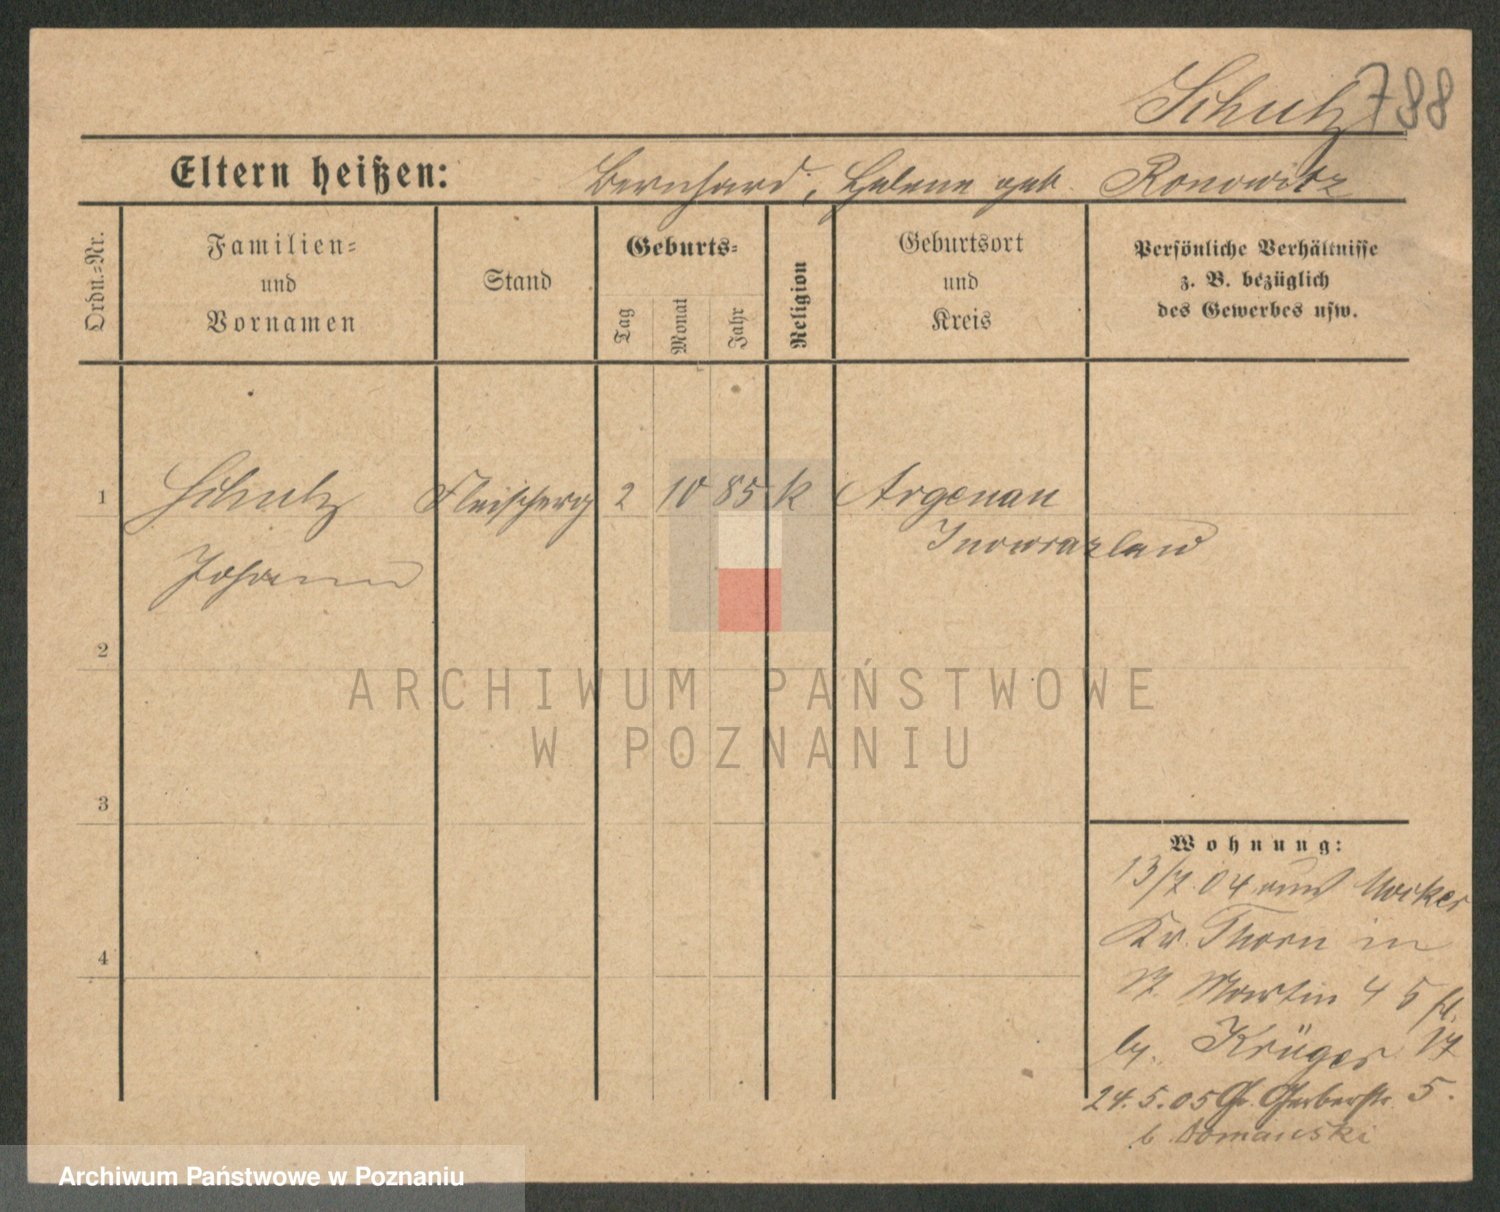 Schulz 788
Eltern heißen: Bernhard, Helene geb. Ronowitz
Ordn.=Nr.
Familien=
und
Vornamen
Stand
Geburts=
Tag
Monat
Jahr
Religion
Geburtsort
und
Kreis
Persönliche Verhältnisse
z. B. bezüglich
des Gewerbes usw.
1 Schulz Fleischerg 2 10 85 k Argenau
Inowrazlaw
Johann
2
ARCHIWUM PAŃSTWOWE
W POZNANIU
3
Wohnung:
13/7 04 aus Mocker
Kr. Thorn in
St. Martin 45
by. Krüger
4
24.5.05 Gr. Gerberstr. 5.
b Domanski
Archiwum Państwowe w Poznaniu